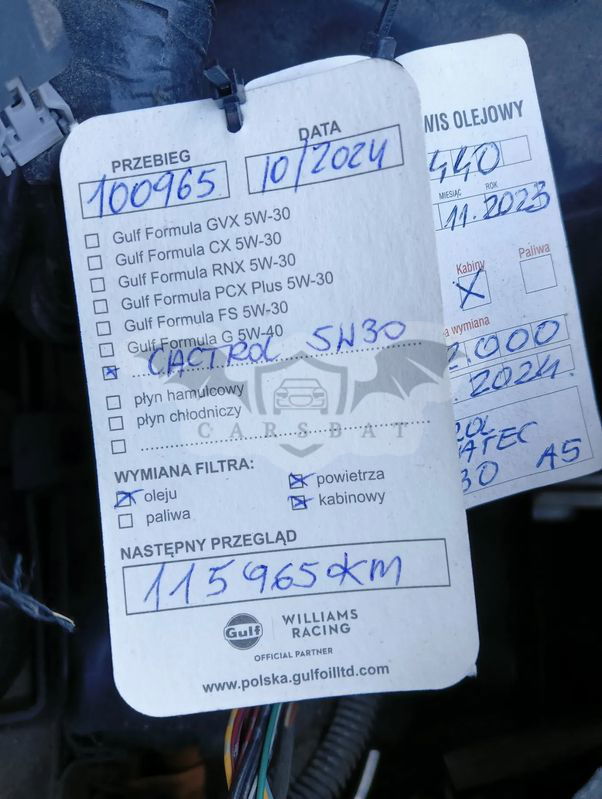 PRZEBIEG
DATA
100965
10/2024
Gulf Formula GVX 5W-30
Gulf Formula CX 5W-30
Gulf Formula RNX 5W-30
Gulf Formula PCX Plus 5W-30
Gulf Formula FS 5W-30
Gulf Formula G 5W-40
CACTROL 5W30
płyn hamulcowy
płyn chłodniczy
CARSBAT
WYMIANA FILTRA:
oleju
powietrza
paliwa
kabinowy
NASTĘPNY PRZEGLĄD
115965 km
Gulf
WILLIAMS
RACING
OFFICIAL PARTNER
www.polska.gulfoilltd.com
WIS OLEJOWY
440
MIESIĄC ROK
11.2023
Kabiny
Paliwa
a wymiana
2000
.2024
ROL
ATEC
30 A5